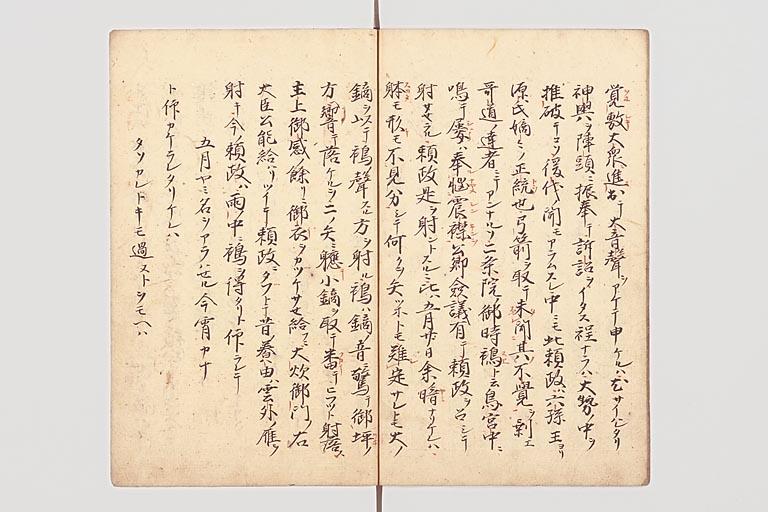 覚敷大衆進出テ大音聲ヲアケテ申ケルハ
神輿ヲ陣頭ニ振奉テ訴訟ヲイタス程ナラハ大勢ノ中ヲ
推破テコソ後代ノ聞モアラムスレ中ニモ此頼政ハ六孫王ヨリ
源氏嫡々ノ正統也弓箭ヲ取テ未聞其不覺ヲ剰エ
哥道ノ達者ニテアンナルソ二条院ノ御時鵼ト云鳥宮中ニ
鳴テ屡奉悩震襟公卿僉議有テ頼政ヲ召シテ
射サセラル頼政是ヲ射ントスルニ比ハ五月廿日余暗サハ暗シ
躰モ形モ不見分シテ何クヲ矢ツホトモ難定サレトモ大ノ
鏑ヲ以テ鵼聲スル方ヲ射ル鵼ハ鏑ノ音ニ驚テ御坪ノ
方ニ響テ落ケルヲ二ノ矢ニ小鏑ヲ取テ番テヒフツト射落ス
主上御感ノ餘リニ御衣ヲカツケサせ給フニ大炊御門ノ右
大臣公能給ハリツイテ頼政ニタフトテ昔ノ養由ハ雲外ノ雁ヲ
射キ今ノ頼政ハ雨ノ中ニ鵼ヲ得タリト作ラレテ
五月ヤミ名ヲアラハせル今宵カナ
ト仰カケラレタリケレハ
タソカレトキモ過ストヲモヘハ